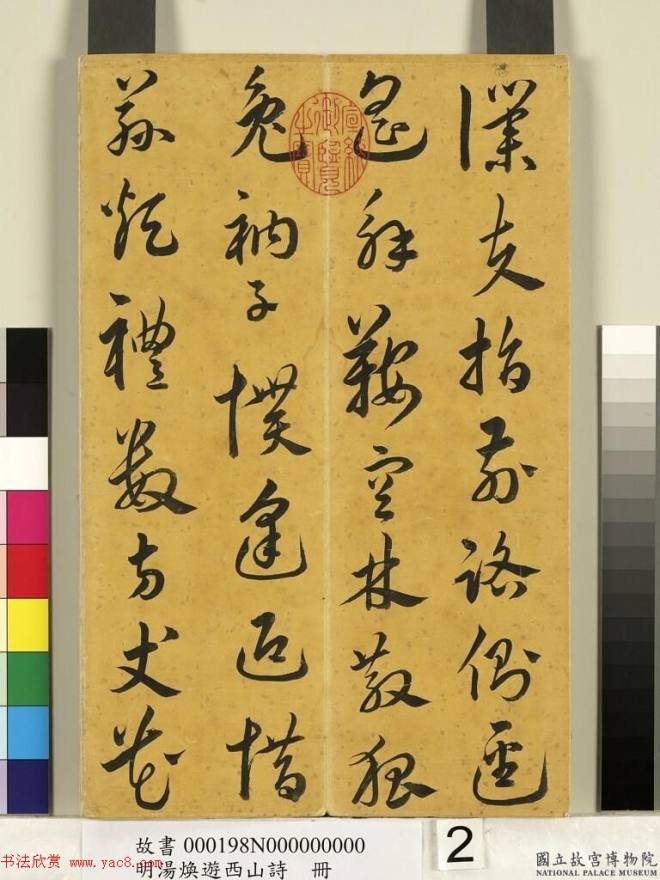 僕夫指前路側逕
遙解鞍空林散狐
兔衲子懽逢迎惜
禮數方丈花
宣統御覽之寶
故書 000198N000000000
明湯煥遊西山詩 冊
2
國立故宮博物院
NATIONAL PALACE MUSEUM
书法欣赏 www.yac8.com